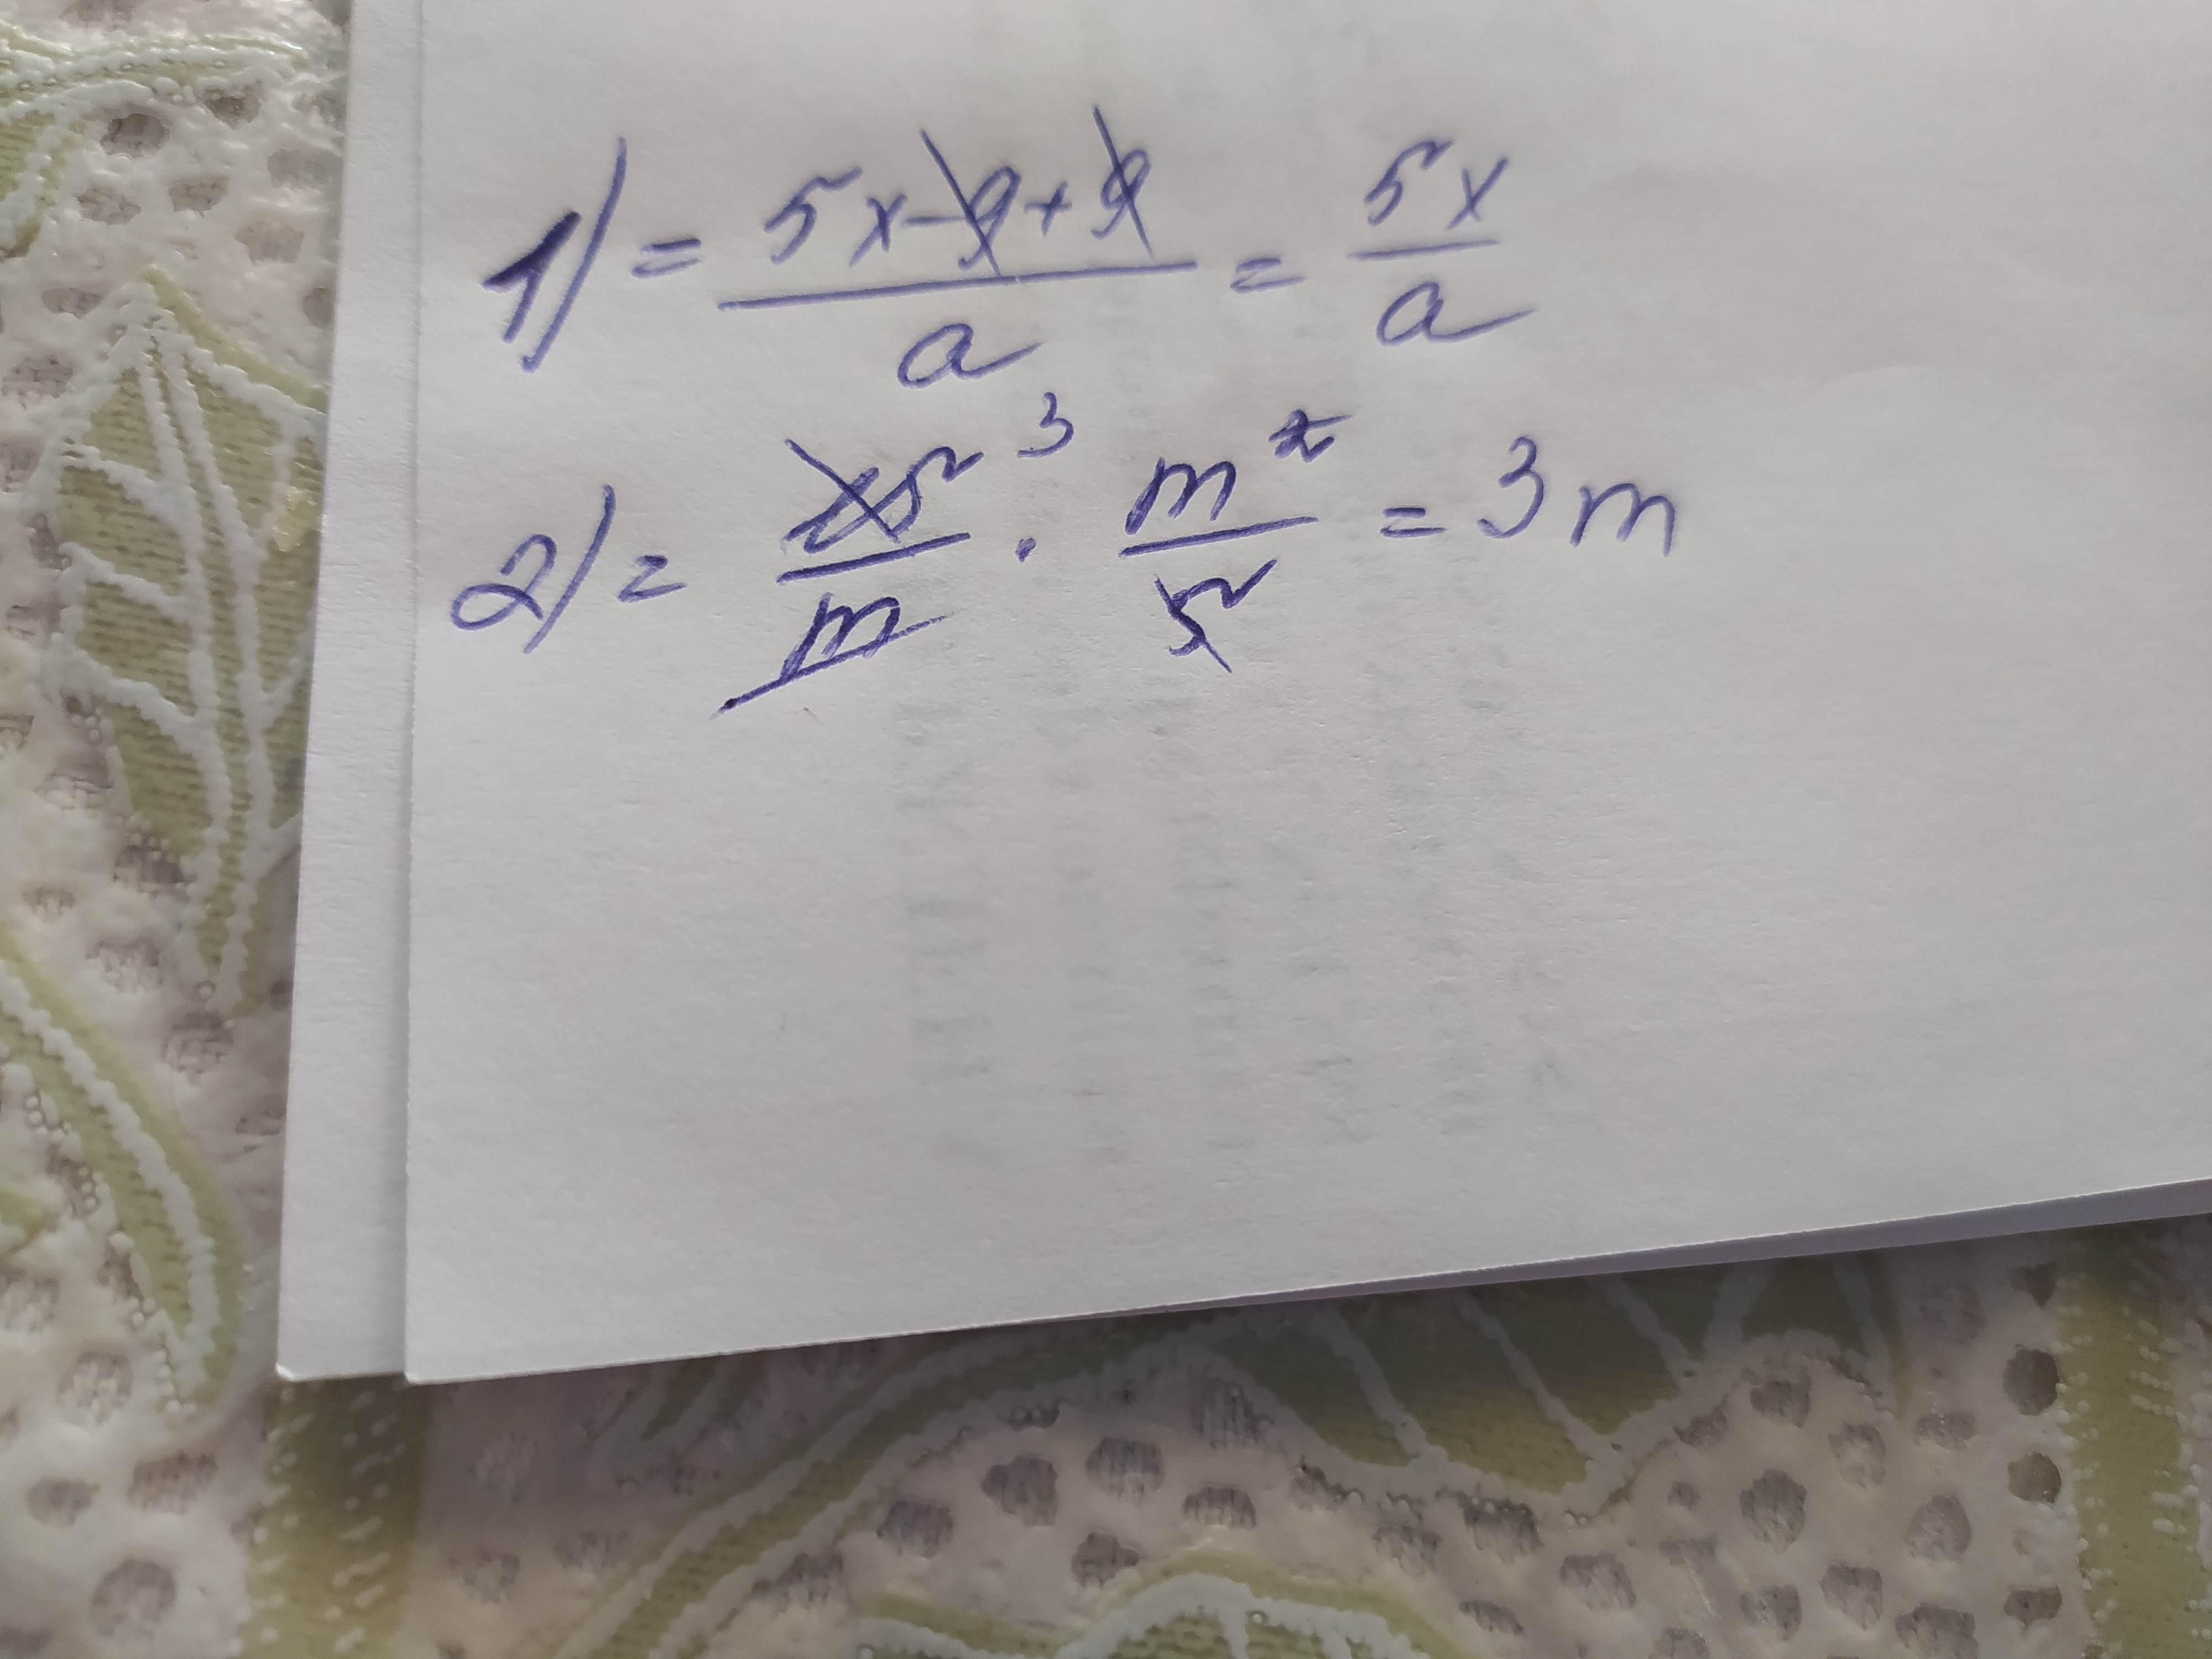 1) = (5x-9+9)/a = 5x/a
2) = 15³/m · m²/5 = 3m